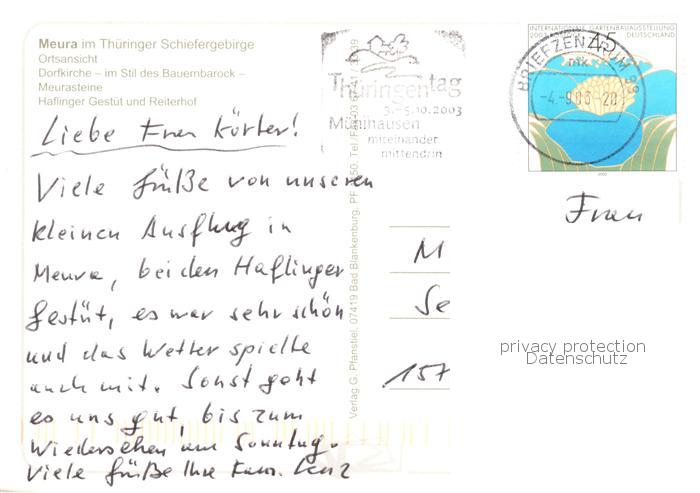 Meura im Thüringer Schiefergebirge
Ortsansicht
Dorfkirche – im Stil des Bauernbarock –
Meurasteine
Haflinger Gestüt und Reiterhof
Liebe Frau Körter!
Viele Grüße von unseren
kleinen Ausflug in
Meura, bei den Haflinger
Gestüt, es war sehr schön
und das Wetter spielte
auch mit. Sonst geht
es uns gut, bis zum
Wiedersehen am Sonntag.
Viele Grüße Ihre Fam. Lenz
Verlag G. Pfanstiel, 07419 Bad Blankenburg, PF
Thüringentag
3.-5.10.2003
Mühlhausen
miteinander
mittendrin
INTERNATIONALE GARTENBAUAUSSTELLUNG
2003
DEUTSCHLAND
45
BRIEFZENTRUM 99
mk
-4.-9.03-20
Frau
M
Se
157
privacy protection
Datenschutz